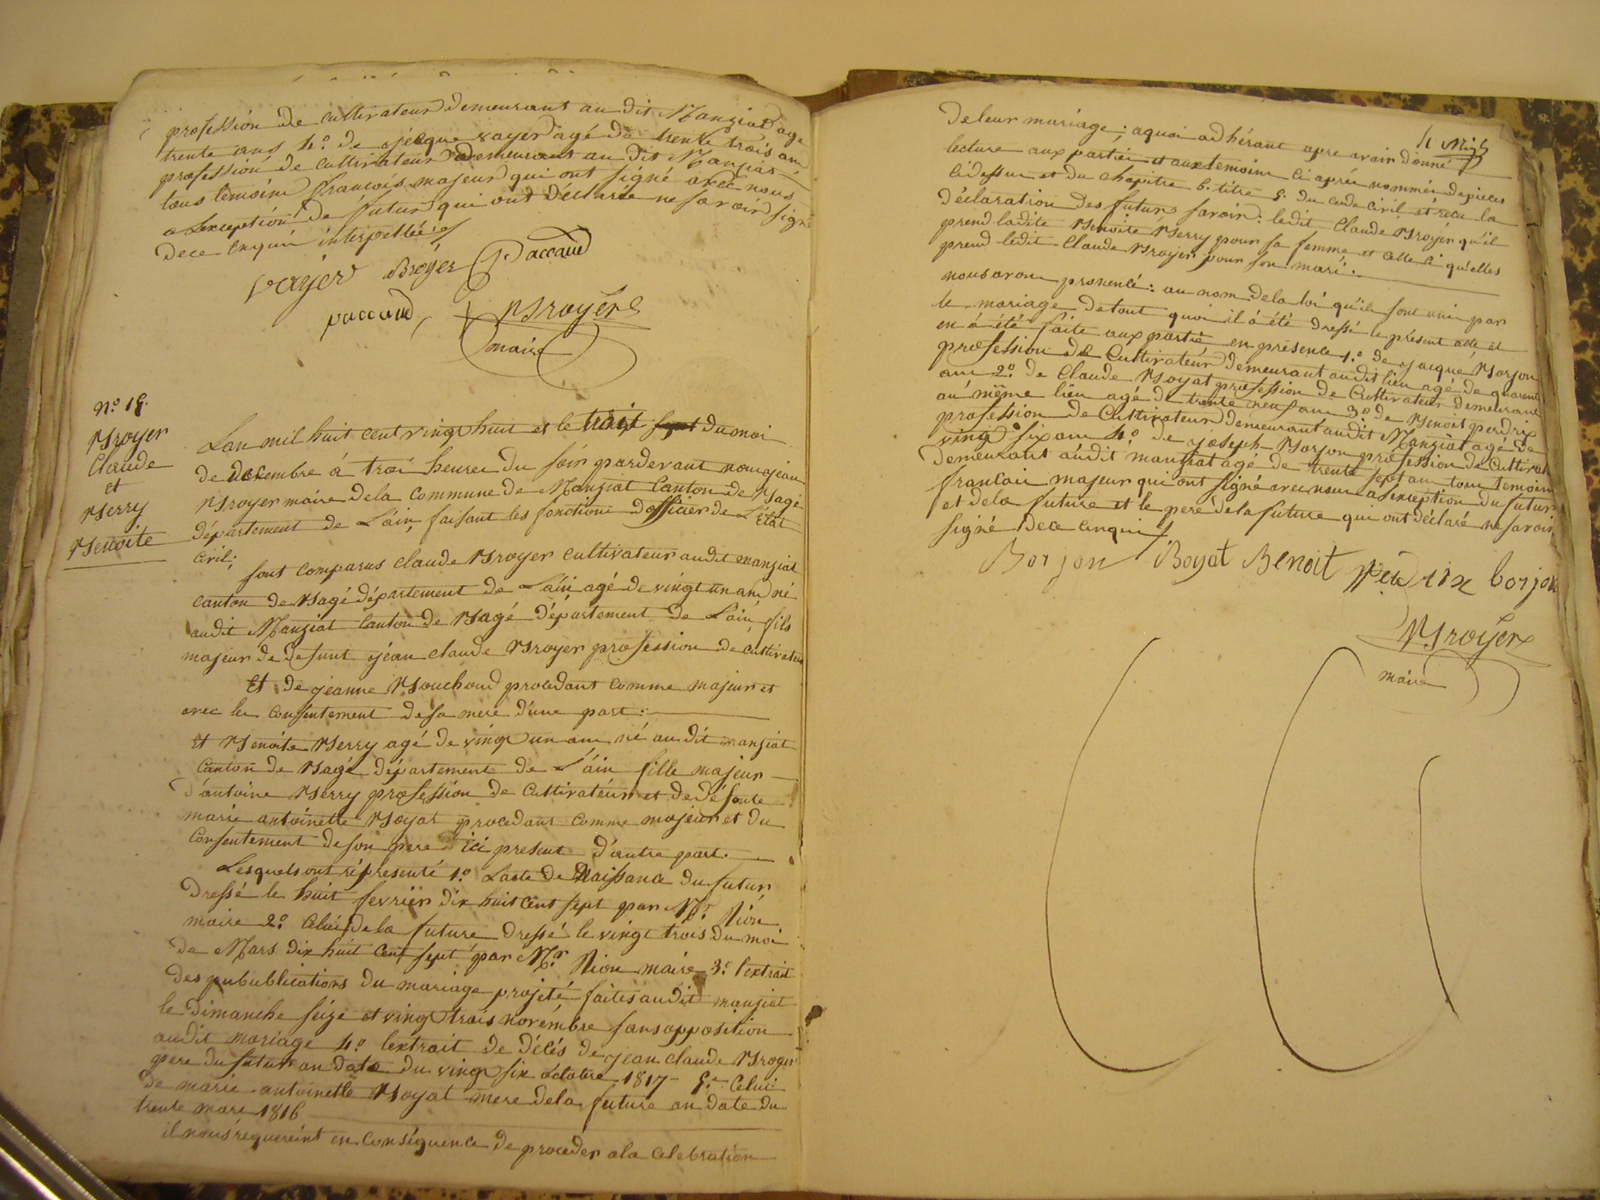 profession de cultivateur demeurant au dit Manziat age
trente ans 4.o de jacque vayer agé de trente trois an
profession de cultivateur demeurant au dit Manziat
tous temoins françois majeur qui ont signé avec nous
a lexception de futur qui ont déclarée ne savoir signé
dece enquis interpellées
vayer Broyer Paccaud
paccaud, Broyer
maire
No 18.
Broyer
Claude
et
Berry
Benoite
Lan mil huit cent vingt huit et le trois sept du moi
de decembre á troi heures du soir pardevant nous jean
Broyer maire dela commune de Manziat Canton de Bagé
département de L'ain, faisant les fonctions dofficier de L'état
civil;
sont comparus claude Broyer cultivateur audit manziat
canton de Bagé département de L'áin agé de vingt un an né
audit Manziat canton de Bagé département de L'ain, fils
majeur de defunt jéan claude Broyer profession de cultivateur
Et de jeanne Bouchoud procedant comme majeur et
avec le consentement desa mere d'une part:
et Benoite Berry agé de vingt un an né au dit manziat
canton de Bagé département de L'áin fille majeur
d'antoine Berry profession de cultivateur et de défunte
marie antoinette Boyat procedant comme majeur et du
consentement deson pere ici present d'autre part.
Lesquels ont réprésenté 1.o Lacte de Naissance du futur
dressé le huit fevrier dix huit cent sept par Mr. Nion
maire 2.o celui dela future dressé le vingt trois du moi
de Mars dix huit cent sept par Mr. Nion maire 3.o l'extrait
des pubublications du mariage projeté faites audit manziat
le dimanche séize et vingt trois novembre sans opposition
audit mariage 4.o l'extrait de décés de jean claude Broyer
pere du futur an date du vingt six octobre 1817 5.o Celui
de marie antoinette Boyat mere dela future an date du
trente mars 1816
il nous requereint en conséquence de proceder ala celebration
de leur mariage; aquoi adhérant apre avoir donné
lecture aux parties et aux temoins ci aprés nommés depieces
cidessus et du chapitre 6. titre 5. du code civil et recu la
déclaration des futur savoir: ledit Claude Broyer qu'il
prend ladite Benoite Berry pour sa femme et celle ci qu'elles
prend ledit Claude Broyer pour son mari:
nous avons prononcé: au nom dela loi qu'ils sont unis par
le mariage detout quoi il á été dressé le présent acte et
en á été faite aux partie en présence 1.o de jacque Borjon
profession de Cultivateur demeurant audit lieu agé de quarante
ans 2.o de Claude Boyat profession de Cultivateur demeurant
au même lieu agé de trente neuf ans 3.o de Benoit perdrix
profession de Cultivateur demeurant audit Manziat agé de
vingt six ans 4.o de joseph Borjon profession de Cultivat
demeurant áudit manziat agé de trente sept ans tous temoins
francais majeur qui ont signé avec nous a lexception du futur
et dela future et le pere dela future qui ont déclaré ne savoir
signé dece enquis
Borjon Boyat Benoit Perdrix borjon
Broyer
maire